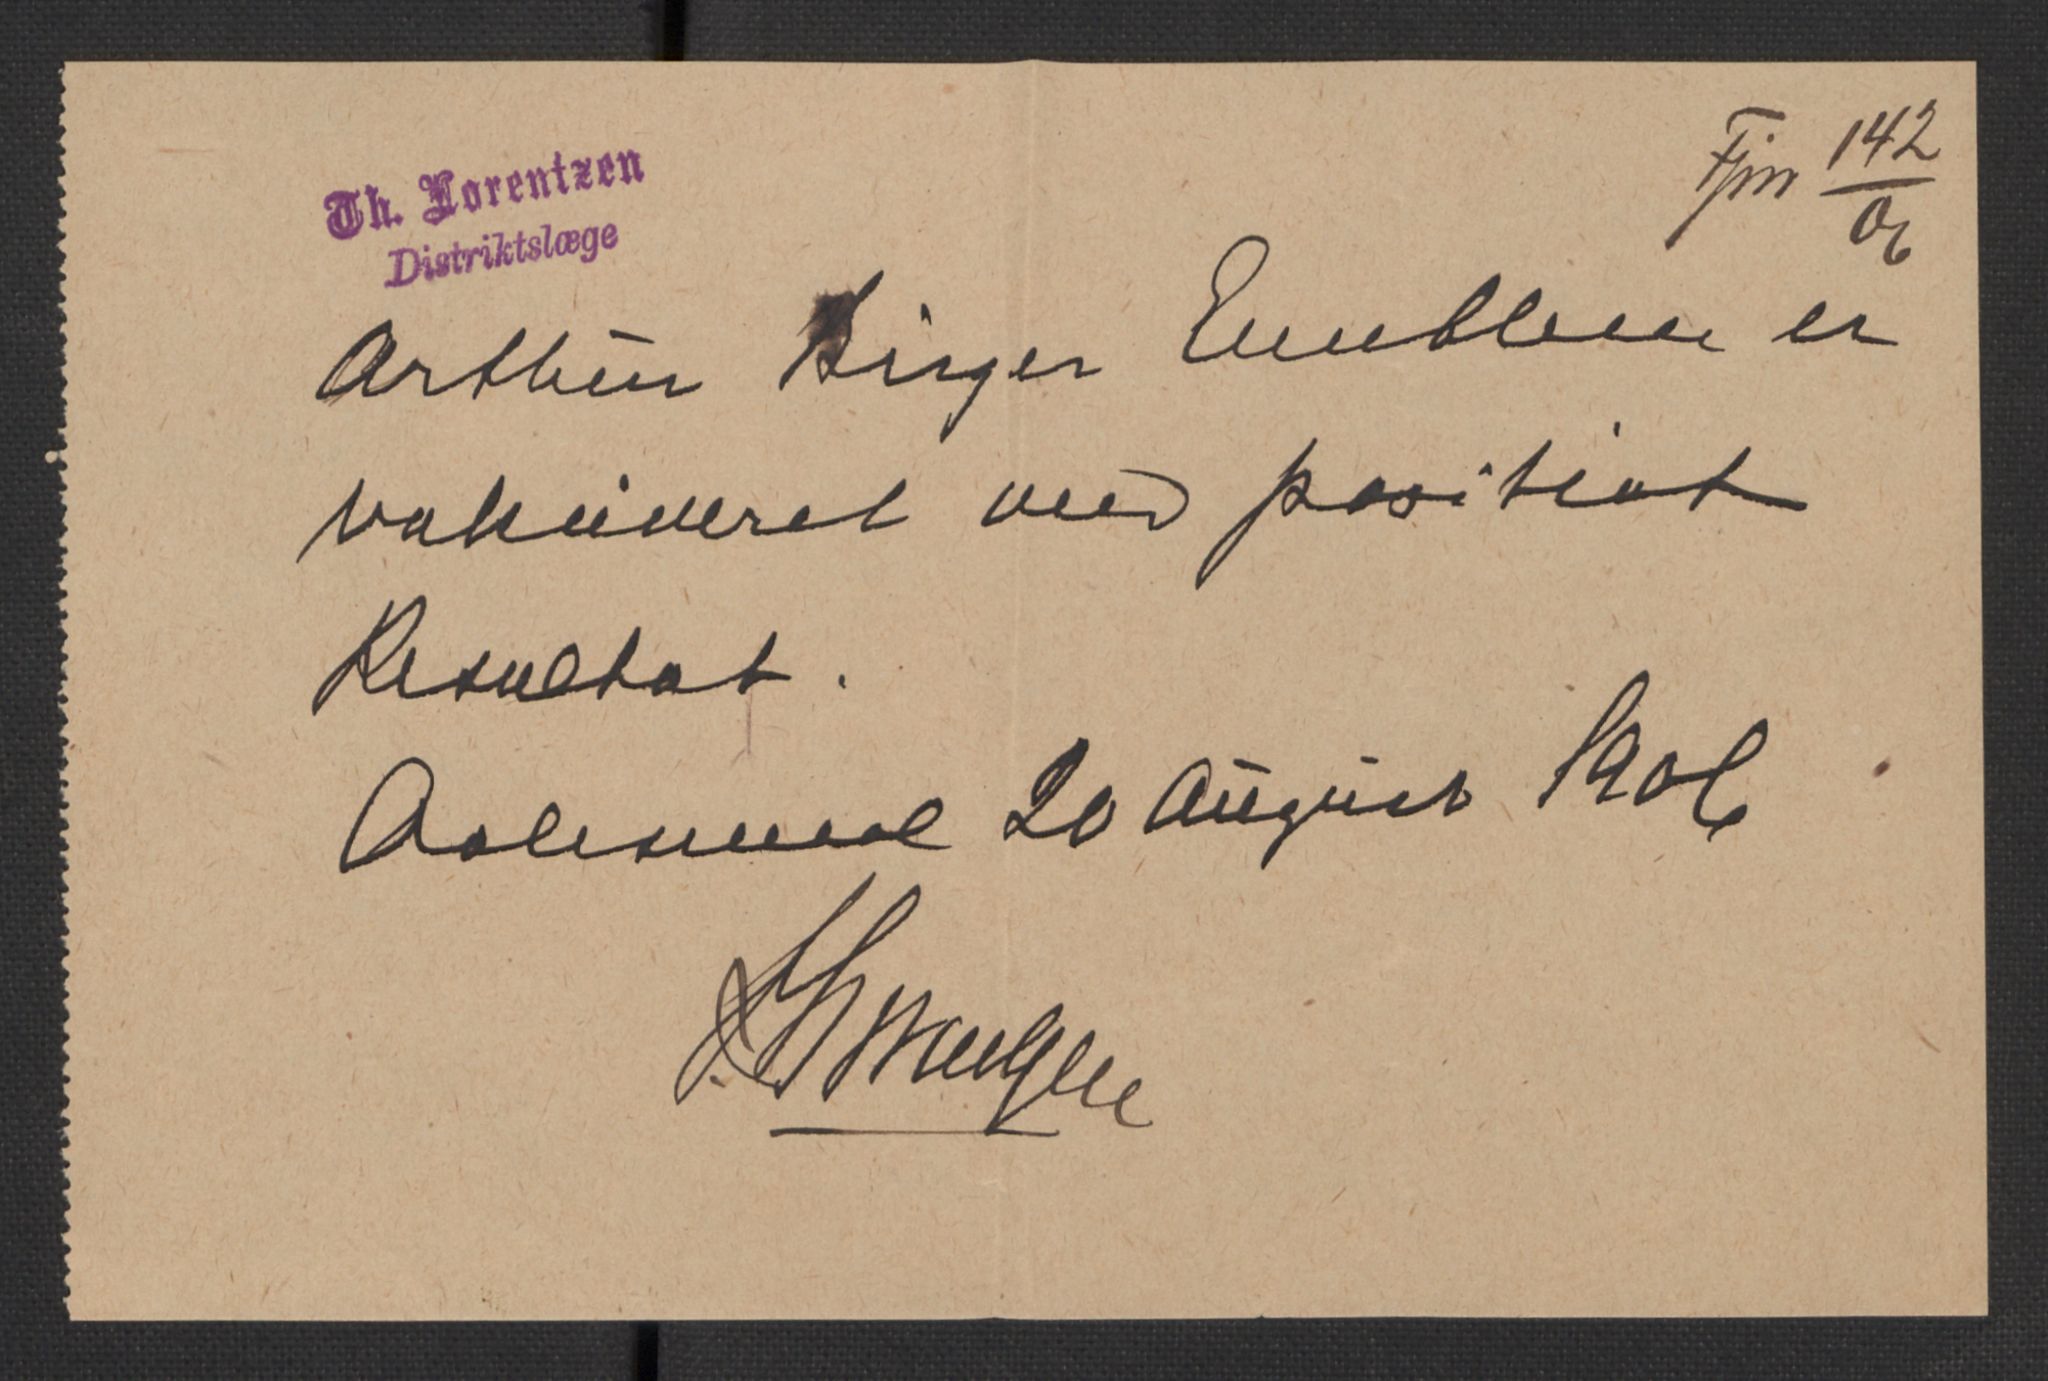 Th. Lorentzen
Distriktslæge
Fjm 142/06
Arthur Birger Emblem er
vakineret med positivt
Resultat.
Aalesund 20 August 1906